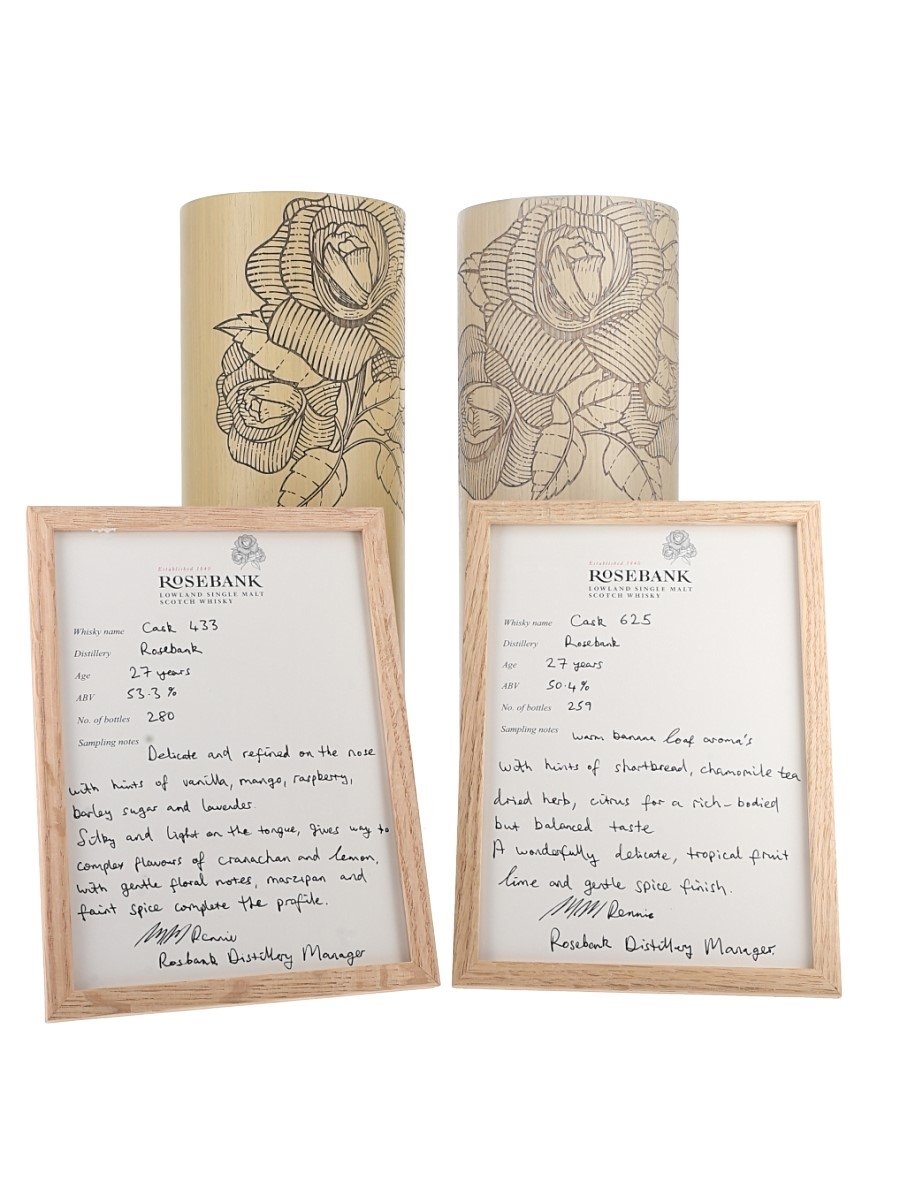 Established 1840
ROSEBANK
LOWLAND SINGLE MALT
SCOTCH WHISKY
Whisky name Cask 433
Distillery Rosebank
Age 27 years
ABV 53.3%
No. of bottles 280
Sampling notes
Delicate and refined on the nose
with hints of vanilla, mango, raspberry,
barley sugar and lavender.
Silky and light on the tongue, gives way to
complex flavours of cranachan and lemon,
with gentle floral notes, marzipan and
faint spice complete the profile.
Rennie
Rosbank Distillery Manager
Established 1840
ROSEBANK
LOWLAND SINGLE MALT
SCOTCH WHISKY
Whisky name Cask 625
Distillery Rosebank
Age 27 years
ABV 50.4%
No. of bottles 259
Sampling notes warm banana loaf aroma's
with hints of shortbread, chamomile tea
dried herb, citrus for a rich-bodied
but balanced taste
A wonderfully delicate, tropical fruit
lime and gentle spice finish.
Rennie
Rosebank Distillery Manager.